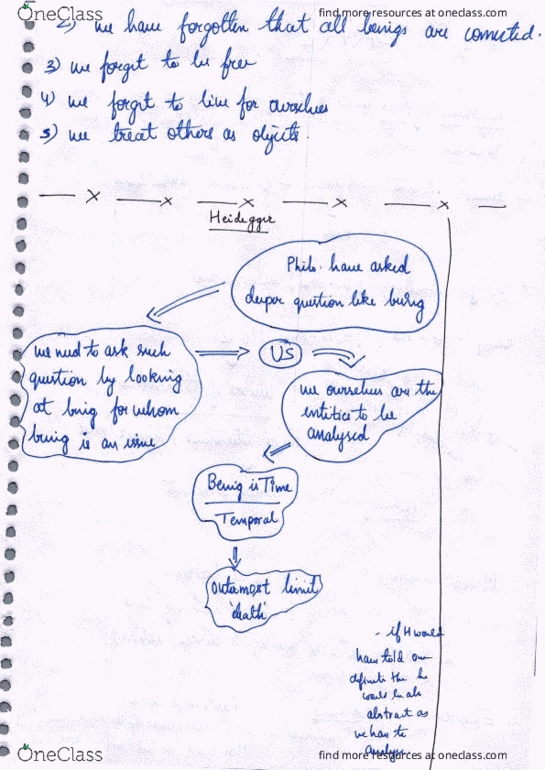 OneClass
find more resources at oneclass.com
2) we have forgotten that all beings are connected.
3) we forget to be free
4) we forget to live for ourselves
5) we treat others as objects.
Heidegger
Philo. have asked
deeper question like being
we need to ask such
question by looking
at being for whom
being is an issue
US
we ourselves are the
entities to be
analysed
Being is Time
Temporal
outamost limit
'death'
- if H would
have told our
the he
would
abstract as
we have to
OneClass
find more resources at oneclass.com